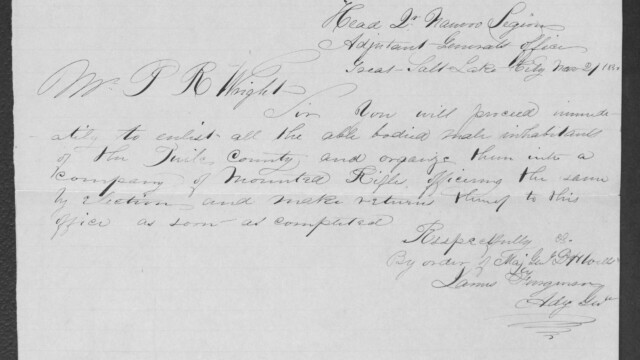 Head Qrs Nauvoo Legion
Adjutant Generals office
Great Salt Lake City Nov 21
Mr. P R Wright
Sir You will proceed immedi-
atily to enlist all the able bodied male inhabitants
of the County and organize them into a
Company of Mounted Rifle, officering the same
by Election and make returns thereof to this
office as soon as completed
Respectfully &c
By order of Maj Genl D H Wells
James Ferguson
Adj Genl